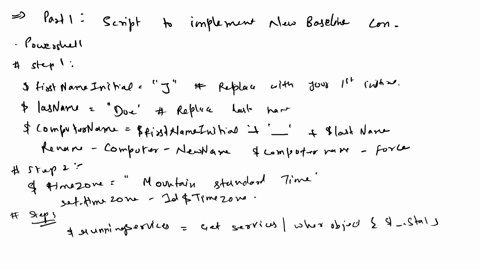 ⇒ Part 1: Script to implement New Baseline Con.
- Powershell
# Step 1:
$ firstNameInitial = "J" # Replace with your 1st initial.
$ lasName = "Doe' # Replace last name
$ ComputerName = $firstNameInitial + '__' + $last Name
Rename - Computer - NewName $ computer name - Force
# Step 2:
$ timezone = " Mountain standard Time'
set.timezone - Id $Timezone.
# Step
$ runningservices = Get services | wher object { $_.Stat